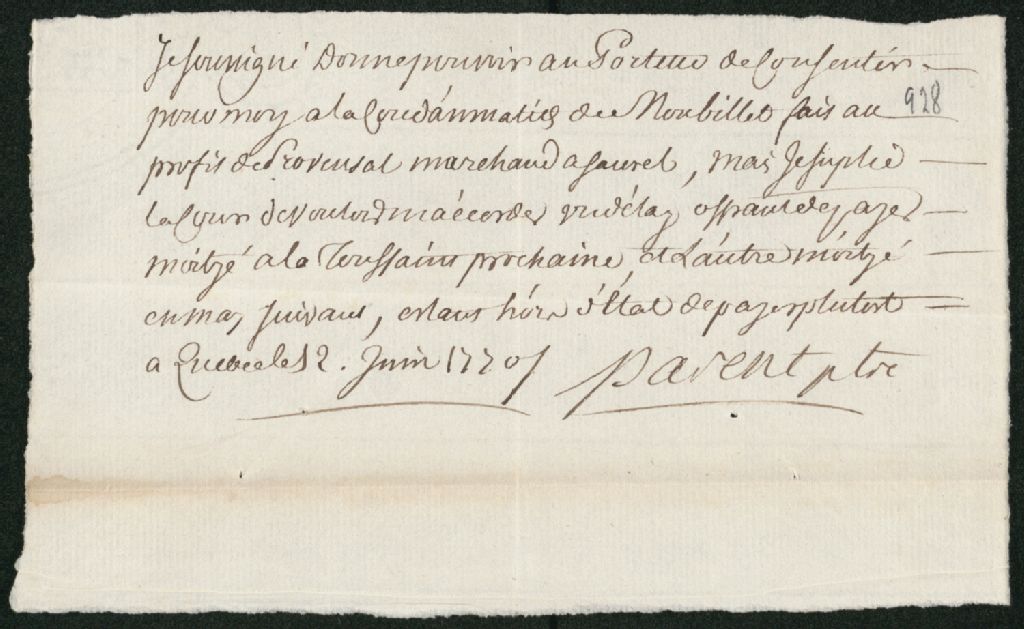 Je sousigné donne pouvoir au Porteur de Consentir
pour moy a la Condamnation de Mon billet fais au 928
profit de Provensal marchand a Saurel, mais Je suplie
la Cour de Vouloir m'accorder un délay offrant de payer
moityé a la Toussaint prochaine, et L'autre moityé
en may suivant, estant hors d'Etat de payer plutost
a Quebec le 12. Juin 1770 /
parent ptre